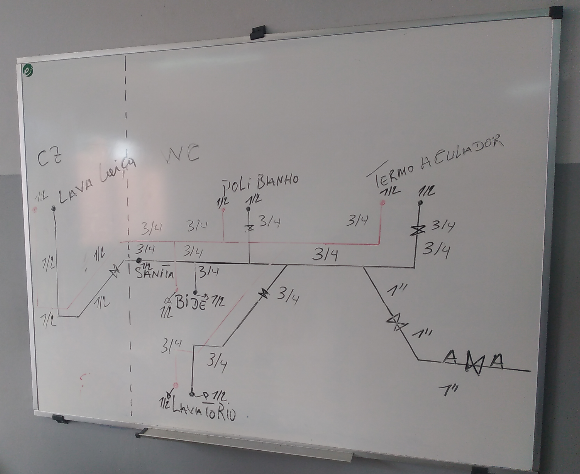 CZ
NC
LAVA Loiça
1/2
POLI BANHO
1/2 1/2
TERMO ACULADOR
1/2 1/2
3/4 3/4 3/4 3/4 3/4
3/4 3/4 3/4 3/4
1/2 1/2
SANITA
1/2
3/4
BIDÉ 1/2
1/2
3/4
1"
1/2 1/2
1"
3/4 3/4
A A
1"
1/2 1/2
LAVATORIO